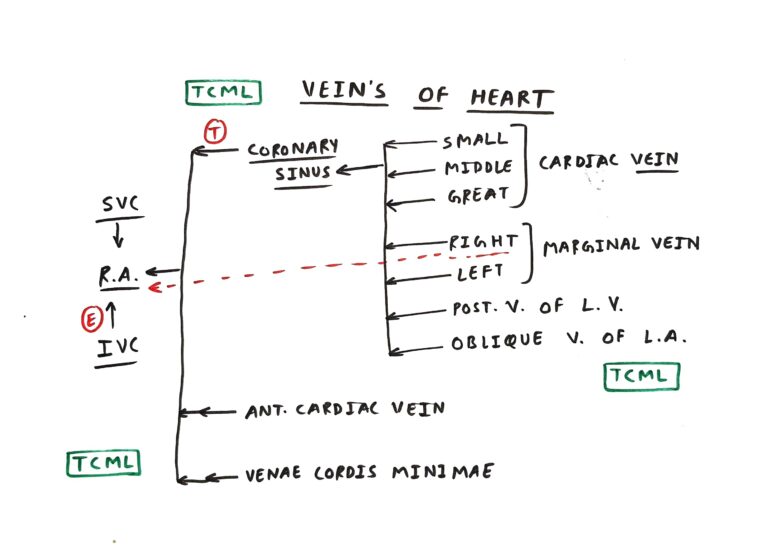 TCML VEIN'S OF HEART
T
CORONARY SINUS
SMALL
MIDDLE
GREAT
CARDIAC VEIN
SVC
R.A.
E
IVC
RIGHT
LEFT
MARGINAL VEIN
POST. V. OF L.V.
OBLIQUE V. OF L.A.
TCML
ANT. CARDIAC VEIN
TCML
VENAE CORDIS MINIMAE